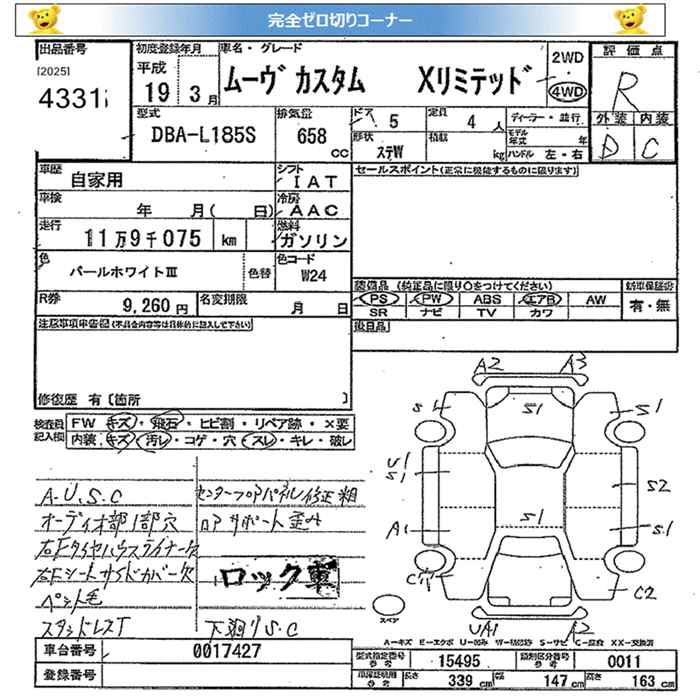 完全ゼロ切りコーナー
出品番号
[2025]
4331
初度登録年月
平成
19 3月
車名・グレード
ムーヴ カスタム Xリミテッド
2WD
・
4WD
評価点
R
外装 内装
D C
型式
DBA-L185S
排気量
658 cc
ドア
5
形状
ステW
定員
4 人
積載
kg
ディーラー・並行
モデル年式 年
ハンドル 左・右
車歴
自家用
シフト
IAT
車検
年 月( 日)
冷房
AAC
走行
11万9千075 km
燃料
ガソリン
色
パールホワイトⅢ
色替
色コード
W24
R券
9,260円
名変期限
月 日
セールスポイント(正常に機能するものに限ります)
装備品 (純正品に限り〇をつけてください)
PS PW ABS エアB AW
SR ナビ TV カワ
新車保証書
有・無
後日品
注意事項申告欄(不具合内容等は具体的に記入して下さい)
修復歴 有〔箇所 〕
検査員記入欄
FW キズ・飛石・ヒビ割・リペア跡・X要
内装、キズ・汚レ・コゲ・穴・スレ・キレ・破レ
A.U.S.C
オーディオ部1部穴
右Fタイヤハウスライナー欠
右Fシートサイドカバー欠
ペット毛
スタッドレスT
センターフロアパネル修正粗
ロアサポート歪み
ロック車
下廻りS.C
A2 A3
S1 S1 S1
U1
S1 S2
A1 S1 S1
C穴 C2
UA1 A2
スペア
A-キズ E-エクボ U-凹み W-補修跡 S-サビ C-腐食 XX-交換済
車台番号
0017427
登録番号
型式指定番号
参考
15495
類別区分番号
参考
0011
車庫証明用
参考
長さ 339 cm 幅 147 cm 高さ 163 cm